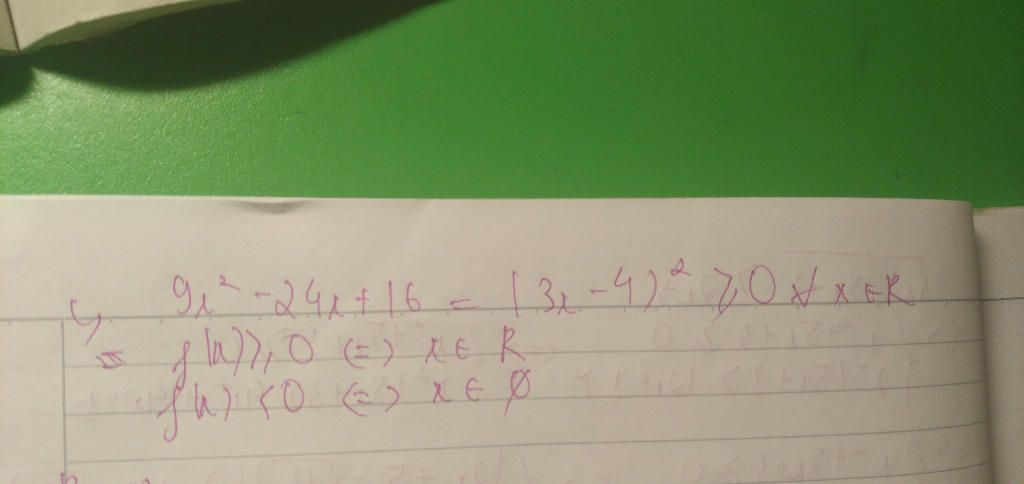 9x² - 24x + 16 = (3x - 4)² ⩾ 0 ∀ x ∈ R
f(x) ⩾ 0 <=> x ∈ R
f(x) < 0 <=> x ∈ ∅